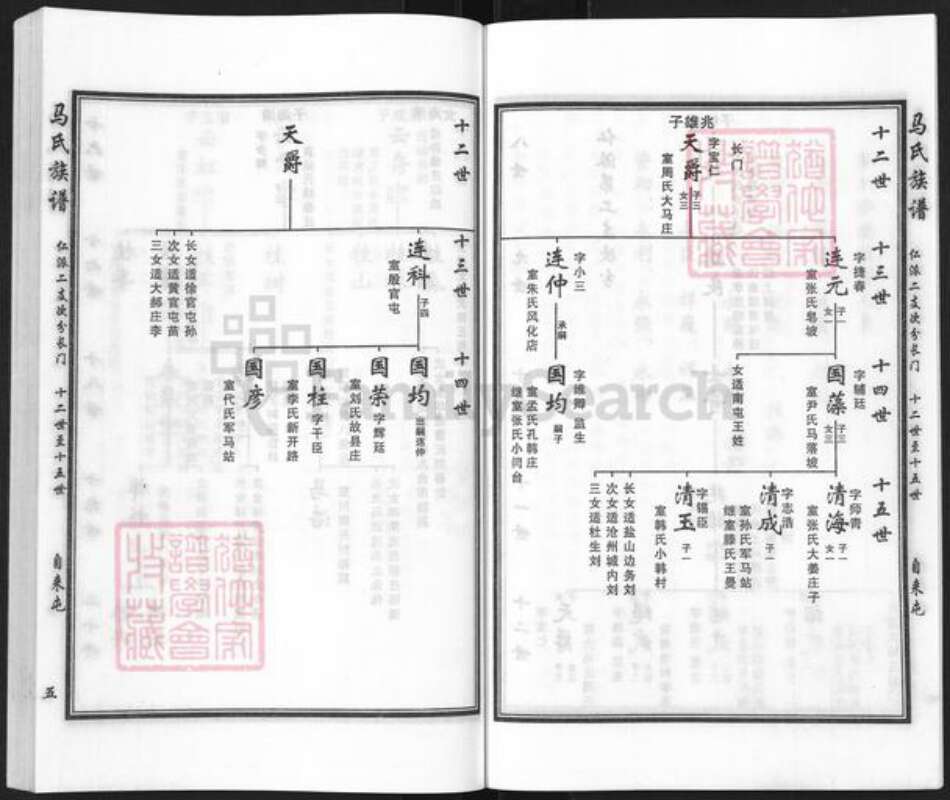 马氏族谱
仁派二支次分长门
十二世至十五世
自来屯
十二世
十三世
十四世
十五世
兆雄子
长门
天爵
字宝仁
室周氏大马庄
子三
女三
连元
字捷春
室张氏皂坡
子一
女一
国藻
字辅廷
室尹氏马落坡
子三
女三
女适南屯王姓
清海
字师青
室张氏大姜庄子
子一
女一
清成
字志浩
室孙氏军马站
继室滕氏王曼
子一
清玉
字锡臣
室韩氏小韩村
子一
长女适盐山边务刘
次女适沧州城内刘
三女适杜生刘
连仲
字小三
室朱氏风化店
承嗣
国均
字维卿
监生
嗣子
室孟氏孔韩庄
继室张氏小闫台
十二世
十三世
十四世
天爵
连科
室殷官屯
子四
长女适徐官屯孙
次女适黄官屯苗
三女适大郝庄李
国均
出嗣连仲
国荣
字辉廷
室刘氏故县庄
国柱
字干臣
室李氏新开路
国彦
室代氏军马站
马氏族谱
仁派二支次分长门
十二世至十五世
自来屯
五
FamilySearch